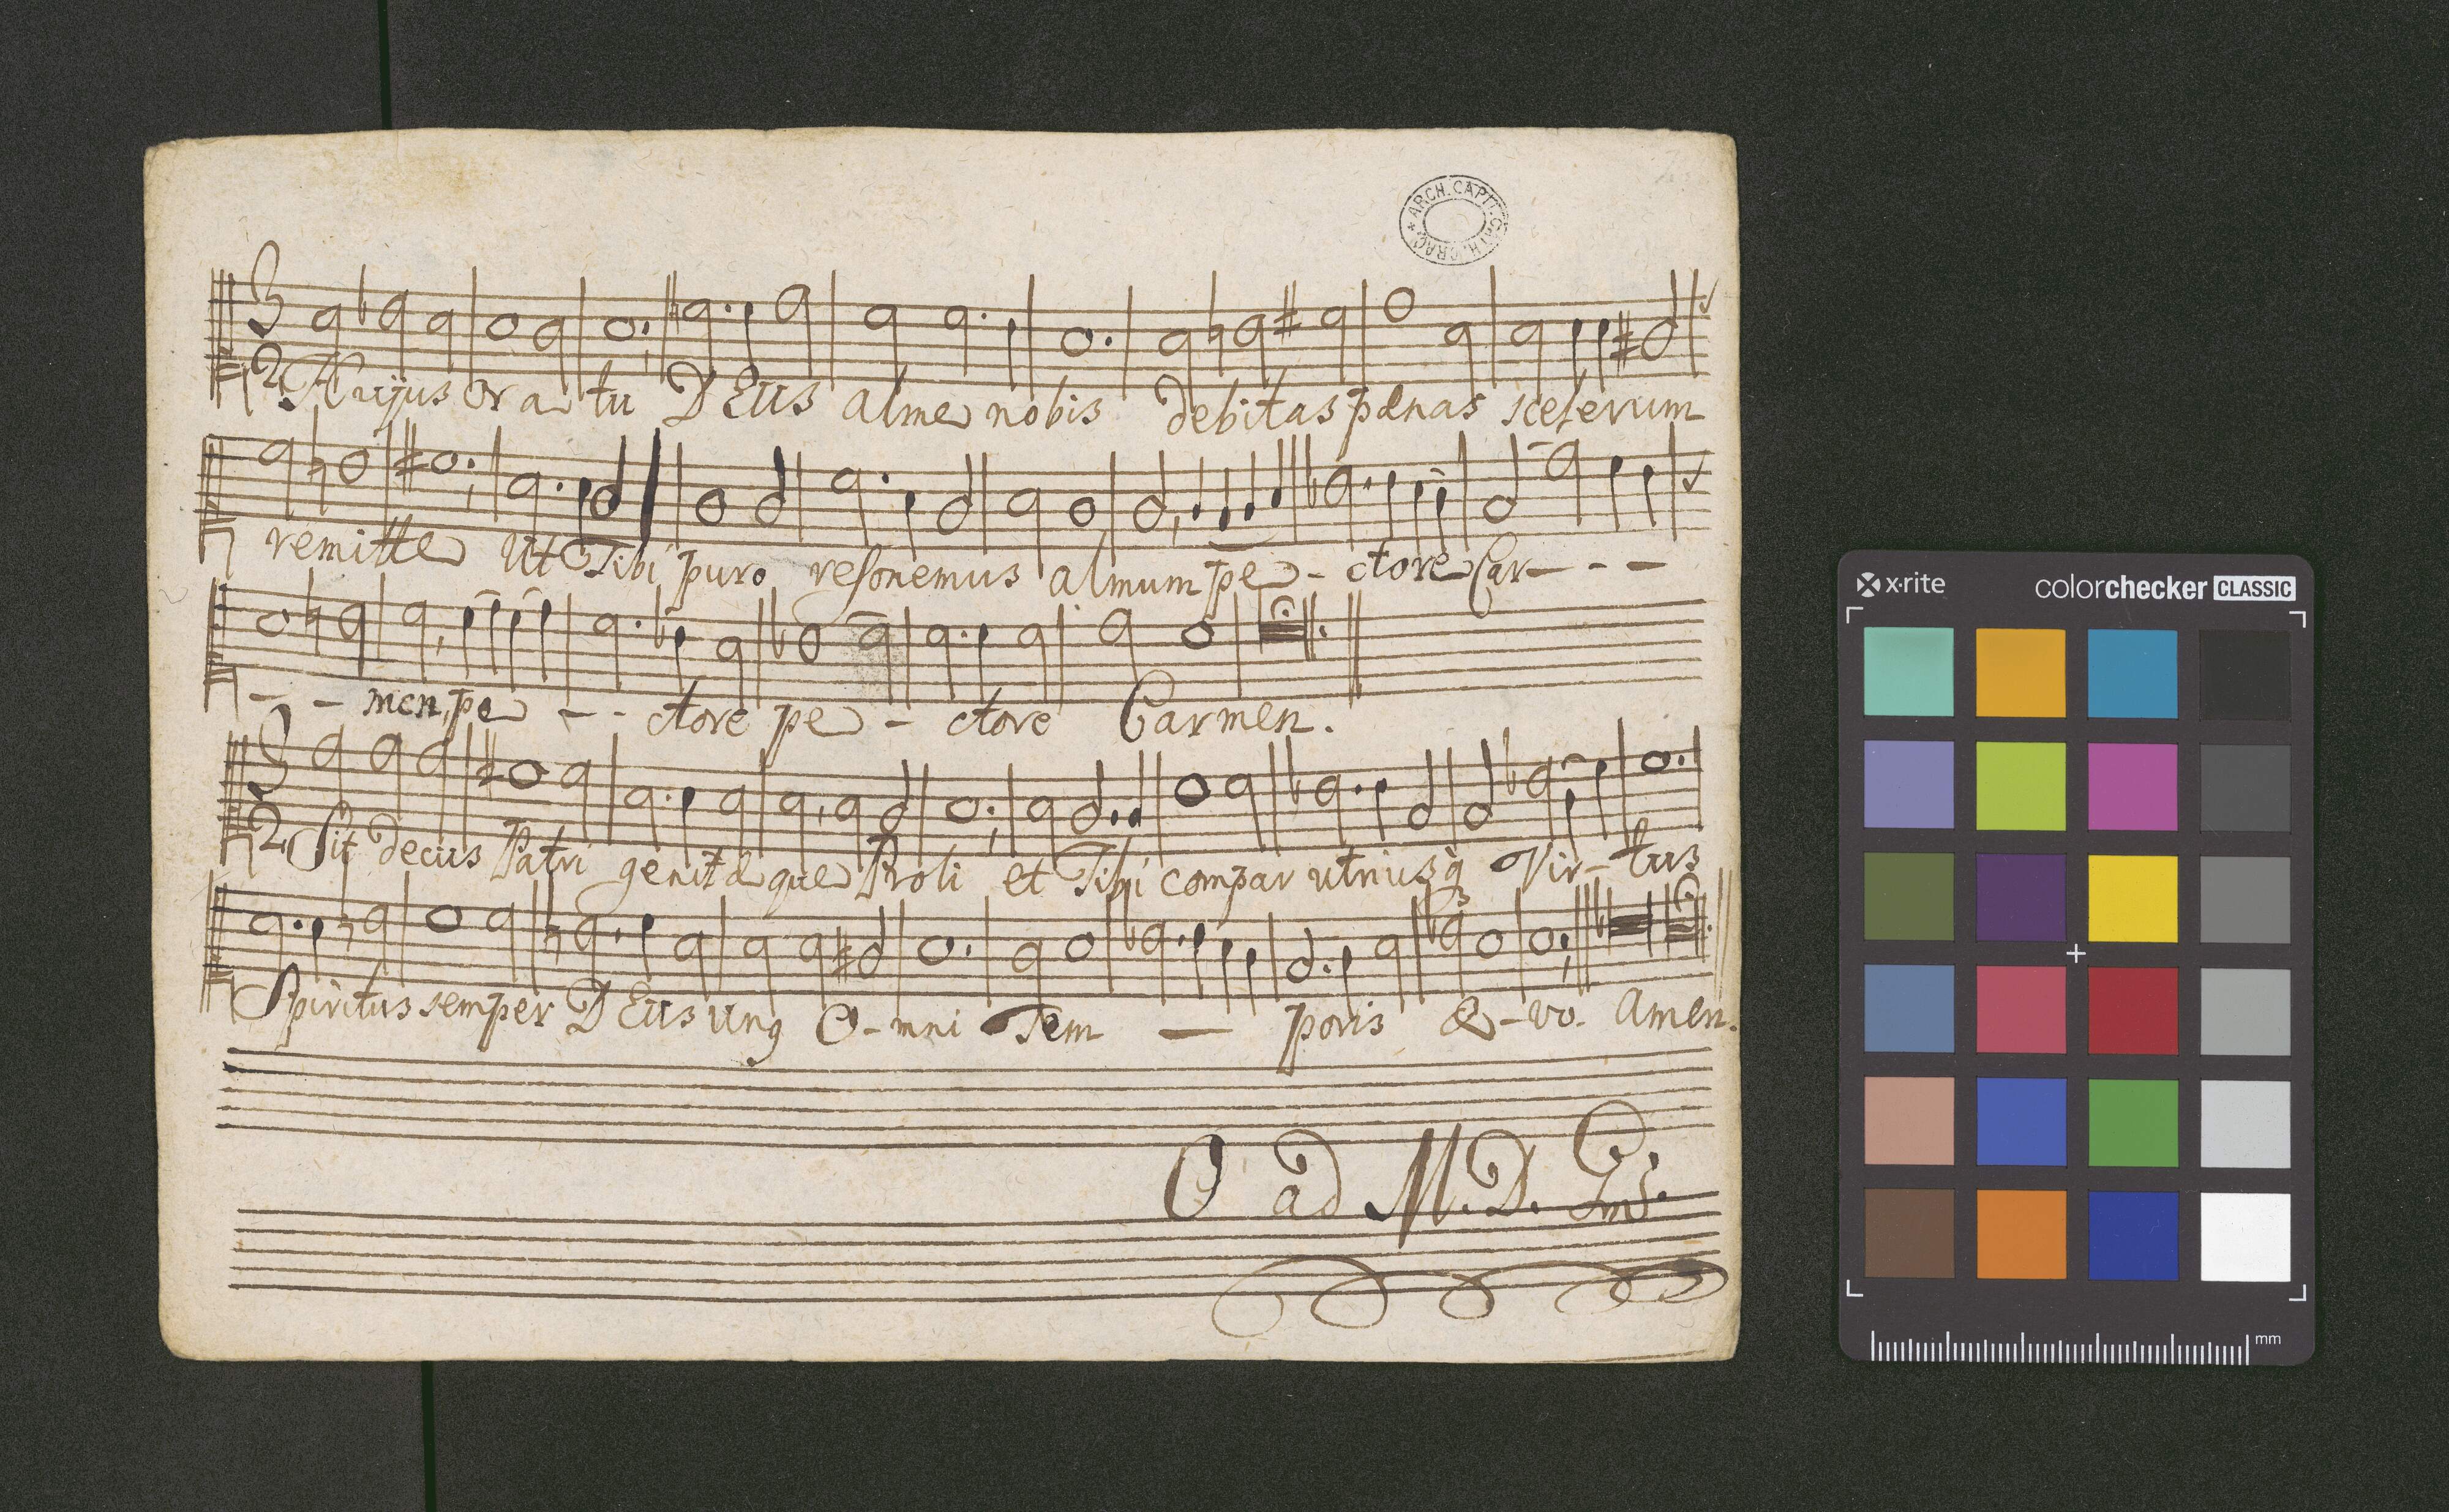 ARCH. CAPIT. CATH. CRAC. *
3
2 Hujus Or a tu DEus alme nobis debitas pænas scelerum
remitte Ut Tibi puro resonemus almum pe - ctore Car - - -
- - men, pe - - ctore pe - ctore Carmen.
3
2 Sit decus Patri genitæ que Proli et Tibi compar utriusq Vir - tus
Spiritus semper DEus unq O - mni Tem — poris Æ - vo. Amen.
O ad M. D. G.
x·rite colorchecker CLASSIC
mm